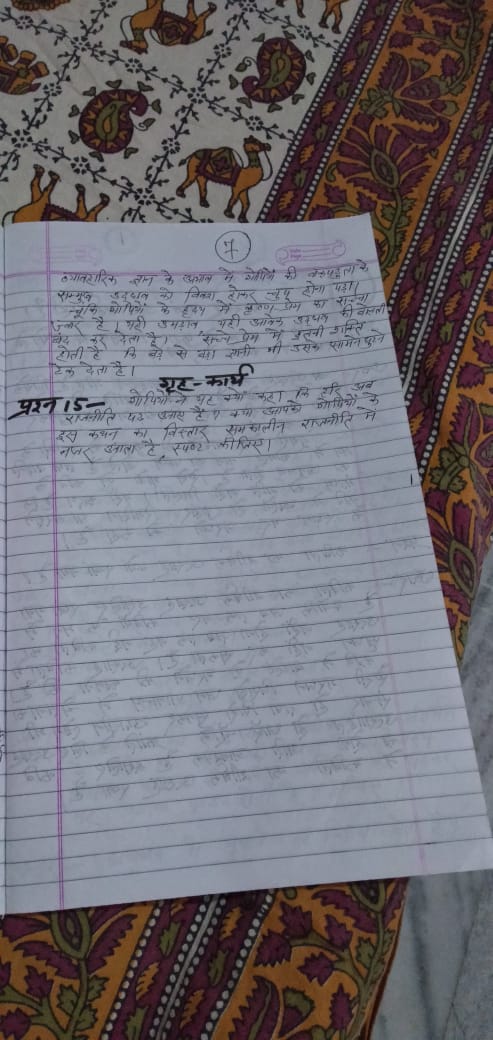 7
व्यावहारिक ज्ञान के अभाव में गोपियों की वाक्पटुता के
सम्मुख उद्धव को विवश होकर चुप होना पड़ा।
गोपियों के हृदय में कृष्ण प्रेम का सच्चा
ज्वर है। यही उनका उद्धव की बोलती
बंद कर देता है। सच्चे प्रेम में इतनी शक्ति
होती है कि बड़े से बड़ा ज्ञानी भी उसके सामने घुटने
टेक देता है।
गृह-कार्य
प्रश्न 15- गोपियों ने यह क्यों कहा कि हरि अब
राजनीति पढ़ आए हैं? क्या आपको गोपियों के
इस कथन का विस्तार समकालीन राजनीति में
नजर आता है, स्पष्ट कीजिए।